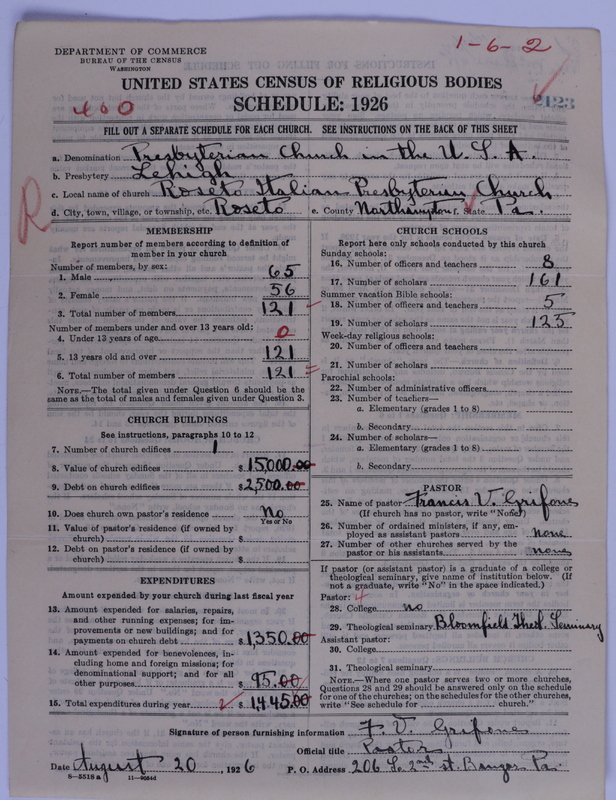 1-6-2
DEPARTMENT OF COMMERCE
BUREAU OF THE CENSUS
WASHINGTON
UNITED STATES CENSUS OF RELIGIOUS BODIES
SCHEDULE: 1926
400
2123
FILL OUT A SEPARATE SCHEDULE FOR EACH CHURCH. SEE INSTRUCTIONS ON THE BACK OF THIS SHEET
a. Denomination Presbyterian Church in the U. S. A.
b. Presbytery Lehigh
c. Local name of church Roseto Italian Presbyterian Church
d. City, town, village, or township, etc. Roseto e. County Northampton f. State Pa.
R
MEMBERSHIP
Report number of members according to definition of
member in your church
Number of members, by sex:
1. Male 65
2. Female 56
3. Total number of members 121
Number of members under and over 13 years old:
4. Under 13 years of age 0
5. 13 years old and over 121
6. Total number of members 121
NOTE.—The total given under Question 6 should be the
same as the total of males and females given under Question 3.
CHURCH BUILDINGS
See instructions, paragraphs 10 to 12
7. Number of church edifices 1
8. Value of church edifices $15,000.00
9. Debt on church edifices $2,500.00
10. Does church own pastor's residence No
Yes or No
11. Value of pastor's residence (if owned by
church) $
12. Debt on pastor's residence (if owned by
church) $
EXPENDITURES
Amount expended by your church during last fiscal year
13. Amount expended for salaries, repairs,
and other running expenses; for im-
provements or new buildings; and for
payments on church debt $1,350.00
14. Amount expended for benevolences, in-
cluding home and foreign missions; for
denominational support; and for all
other purposes $95.00
15. Total expenditures during year $1,445.00
CHURCH SCHOOLS
Report here only schools conducted by this church
Sunday schools:
16. Number of officers and teachers 8
17. Number of scholars 161
Summer vacation Bible schools:
18. Number of officers and teachers 5
19. Number of scholars 125
Week-day religious schools:
20. Number of officers and teachers
21. Number of scholars
Parochial schools:
22. Number of administrative officers
23. Number of teachers—
a. Elementary (grades 1 to 8)
b. Secondary
24. Number of scholars—
a. Elementary (grades 1 to 8)
b. Secondary
PASTOR
25. Name of pastor Francis V. Grifone
(If church has no pastor, write "None")
26. Number of ordained ministers, if any, em-
ployed as assistant pastors none
27. Number of other churches served by the
pastor or his assistants none
If pastor (or assistant pastor) is a graduate of a college or
theological seminary, give name of institution below. (If
not a graduate, write "No" in the space indicated.)
Pastor:
28. College no
29. Theological seminary Bloomfield Theol. Seminary
Assistant pastor:
30. College
31. Theological seminary
NOTE.—Where one pastor serves two or more churches,
Questions 28 and 29 should be answered only on the schedule
for one of the churches; on the schedules for the other churches,
write "See schedule for church."
Signature of person furnishing information F. V. Grifone
Official title Pastor
Date August 20, 1926 P. O. Address 206 S. 2nd st. Bangor Pa.
8—5518a 11—9054d